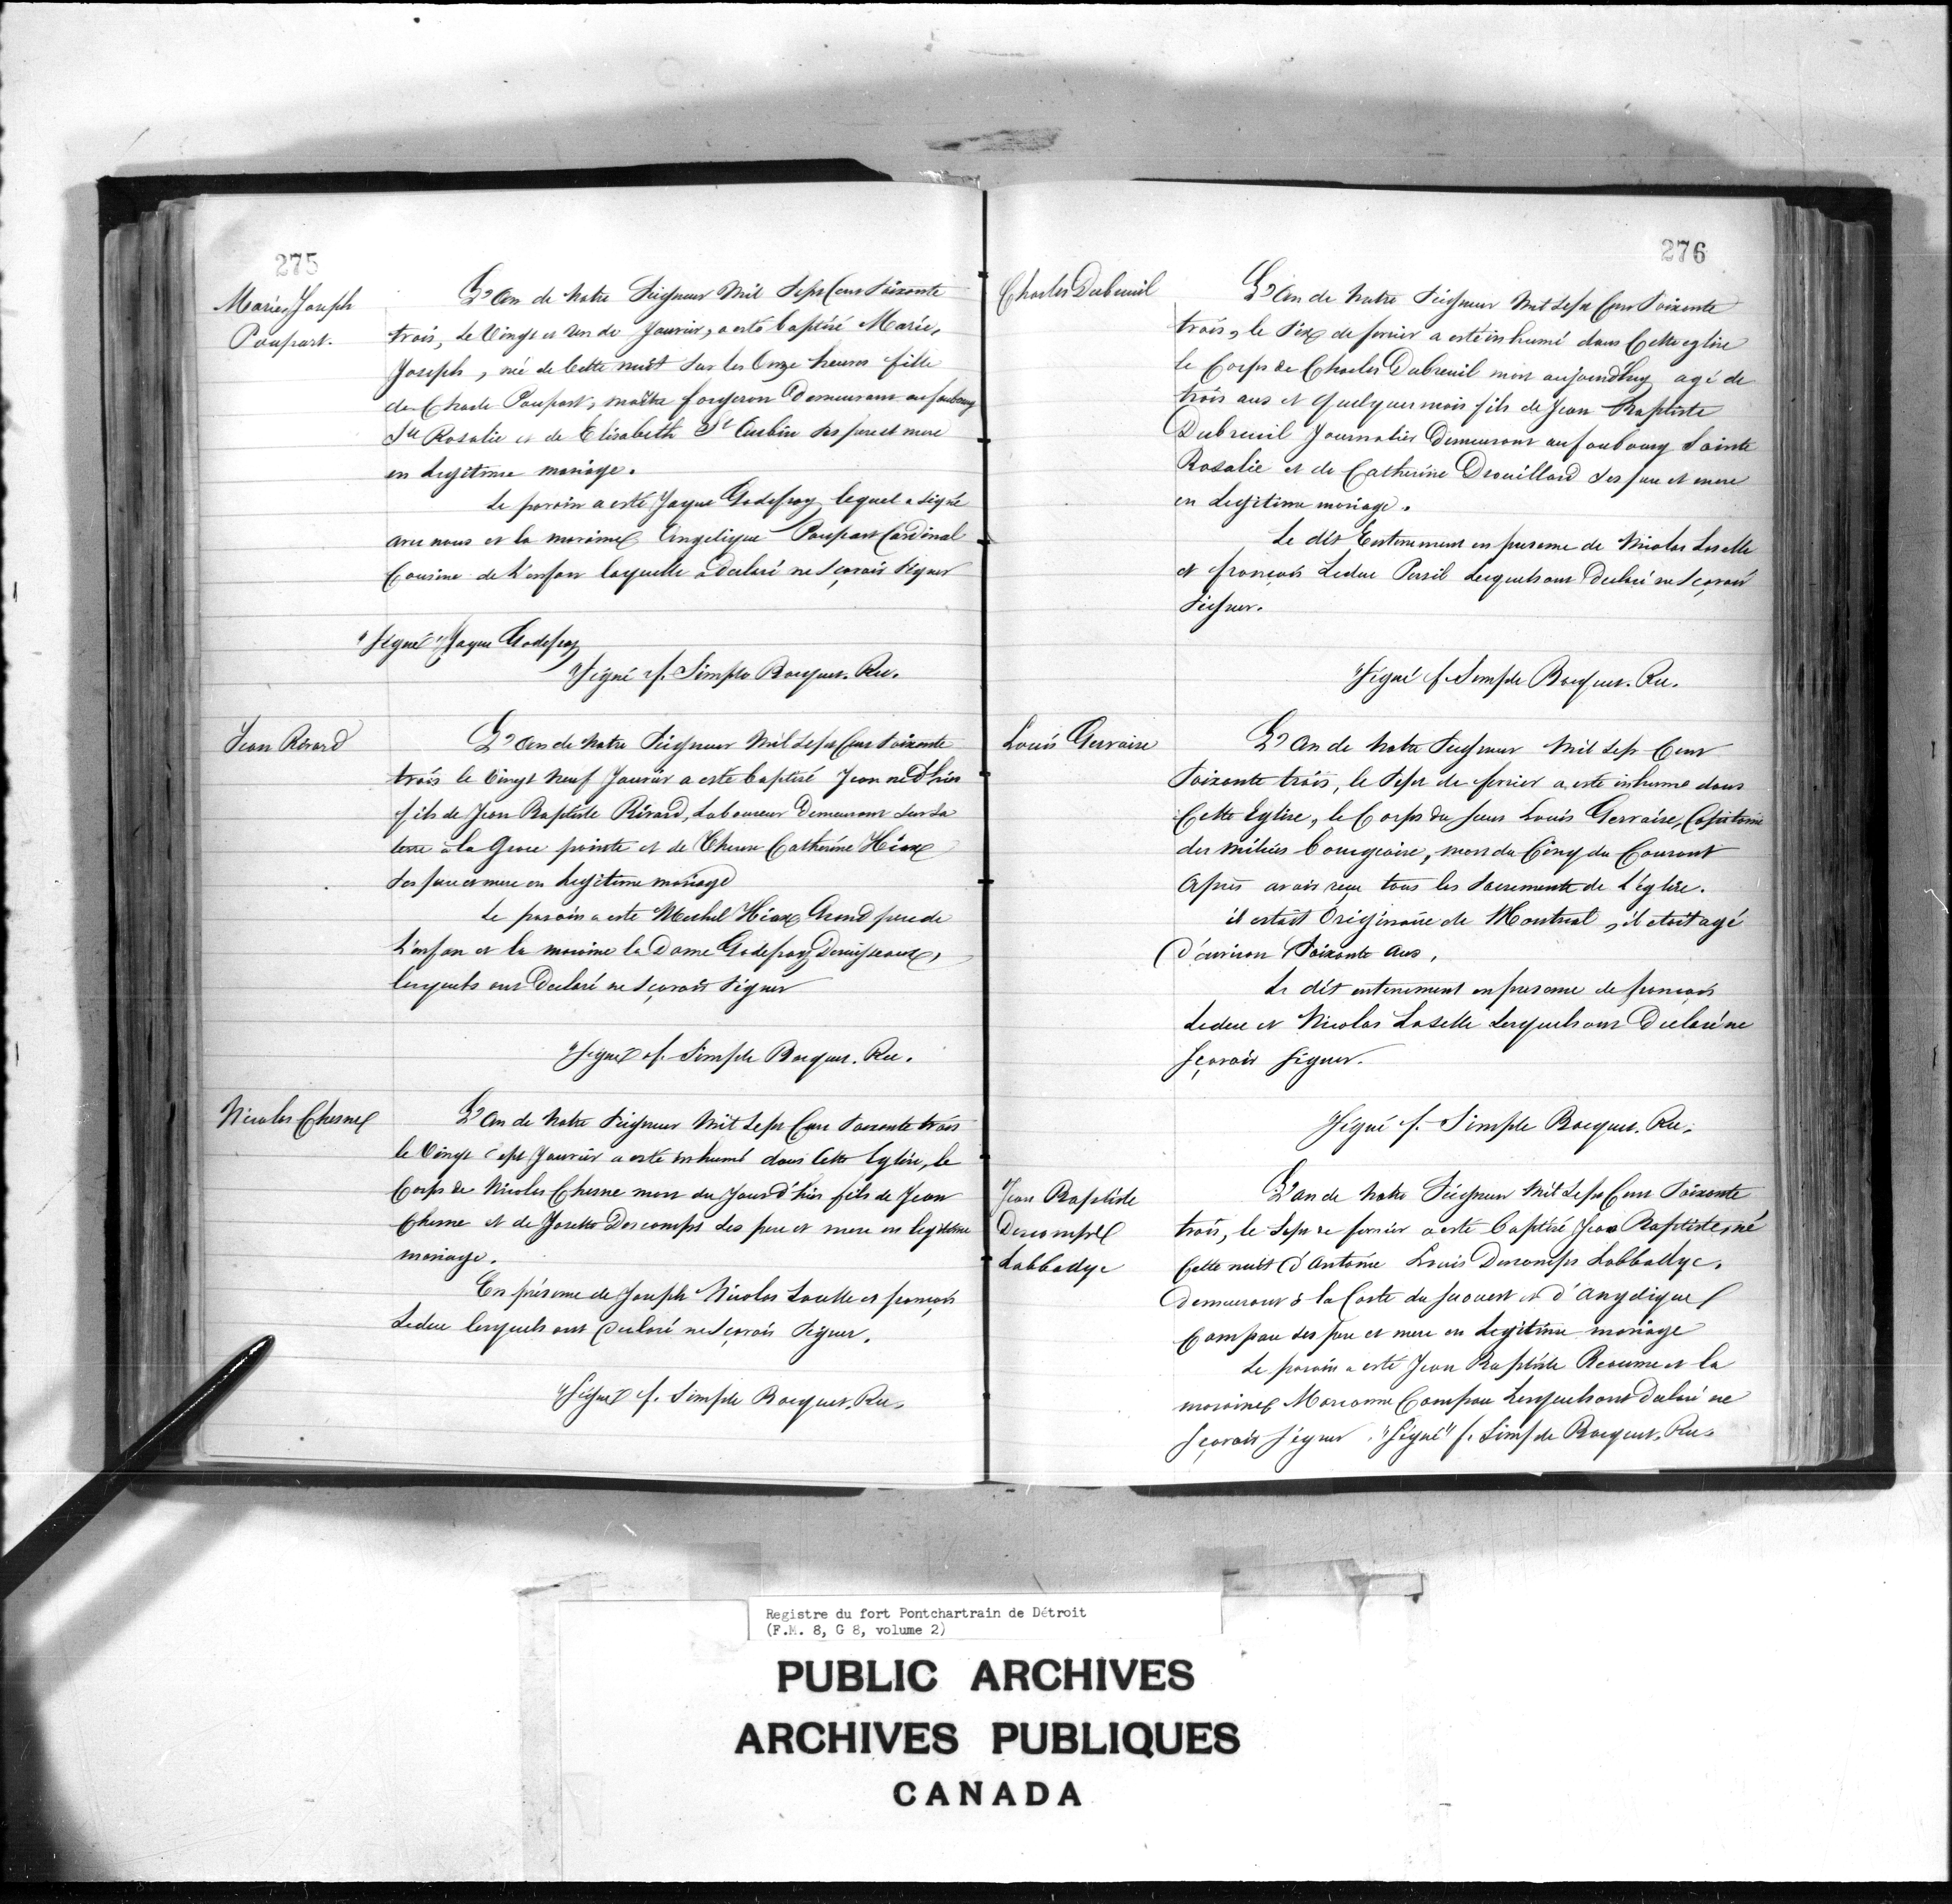 275
Marie, Joseph
Poupart.
L'An de Notre Seigneur Mil Sept Cent Soixante
trois, Le Vingt et Un de Janvier, a esté baptisé Marie,
Joseph, née de Cette nuit Sur les Onze heures fille
de Charle Poupart, maitre forgeron Demeurant au faubourg
Ste Rosalie et de Elisabeth St Aubin Ses pere et mere
en Legitime mariage.
Le parain a esté Jaque Godefroy lequel a Signé
avec nous et la maraine Angelique Poupart Cardinal
Cousine de L'enfan laquelle a Declaré ne Sçavoir Signer
"Signé" Jaque Godefroy
"Signé f. Simple Bocquet. Rec.
Jean Rivard
L'An de Notre Seigneur Mil Sept Cent Soixante
trois le Vingt Neuf Janvier a esté baptisé Jean né d'hier
fils de Jean Baptiste Rivard, Laboureur Demeurant Sur Sa
terre a la Grose pointe et de Catherine Hiax
Ses pere et mere en Legitime mariage
Le parain a esté Michel Hiax Grand pere de
L'enfan et la maraine la Dame Godefroy Deruisseaux,
lesquels ont Declaré ne Sçavoir Signer
"Signé f. Simple Bocquet. Rec.
Nicolas Chesne
L'An de Notre Seigneur Mil Sept Cent Soixante trois
le Vingt Sept Janvier a esté inhumé dans Cette Eglise, le
Corps de Nicolas Chesne mort du Jour d'hier fils de Jean
Chesne et de Josette Descomps Ses pere et mere en legitime
mariage.
En présence de Joseph Nicolas Loselle et françois
Leduc lesquels ont Declaré ne Sçavoir Signer.
"Signé f. Simple Bocquet. Rec.
276
Charles Dubreuil
L'An de Notre Seigneur Mil Sept Cent Soixante
trois, le Six de fevrier a esté inhumé dans Cette eglise
le Corps de Charles Dubreuil mort aujourd'huy agé de
trois ans et quelques mois fils de Jean Baptiste
Dubreuil Journalier Demeurant au faubourg Sainte
Rosalie et de Catherine Drouillard Ses pere et mere
en Legitime mariage.
Le dit Enterement en presence de Nicolas Loselle
et françois Leduc Persil Lesquels ont Declaré ne Sçavoir
Signer.
"Signé f. Simple Bocquet. Rec.
Louis Gervaise
L'An de Notre Seigneur Mil Sept Cent
Soixante trois, le Sept de fevrier a esté inhumé dans
Cette Eglise, le Corps du Sieur Louis Gervaise, Capitaine
des milices bourgeoise, mort du Cinq du Courant
Après avoir reçu tous les Sacrements de L'église.
il estait Originaire de Montreal, il etoit agé
D'environ Soixante Ans.
Le dit enterement en presence de françois
Leduc et Nicolas Loselle Lesquels ont Declaré ne
Sçavoir Signer.
"Signé f. Simple Bocquet. Rec.
Jean Baptiste
Descomps
Labbadye
L'an de Notre Seigneur Mil Sept Cent Soixante
trois, le Sept de fevrier a esté baptisé Jean Baptiste, né
Cette nuit d'Antoine Louis Descomps Labbadye,
Demeurant à la Coste du Surouest et d'Angelique
Campau Ses pere et mere en Legitime mariage
Le parain a esté Jean Baptiste Reaume et la
maraine Marianne Campau Lesquels ont Declaré ne
Sçavoir Signer. "Signé" f. Simple Bocquet. Rec.
Registre du fort Pontchartrain de Détroit
(F.M. 8, G 8, volume 2)
PUBLIC ARCHIVES
ARCHIVES PUBLIQUES
CANADA